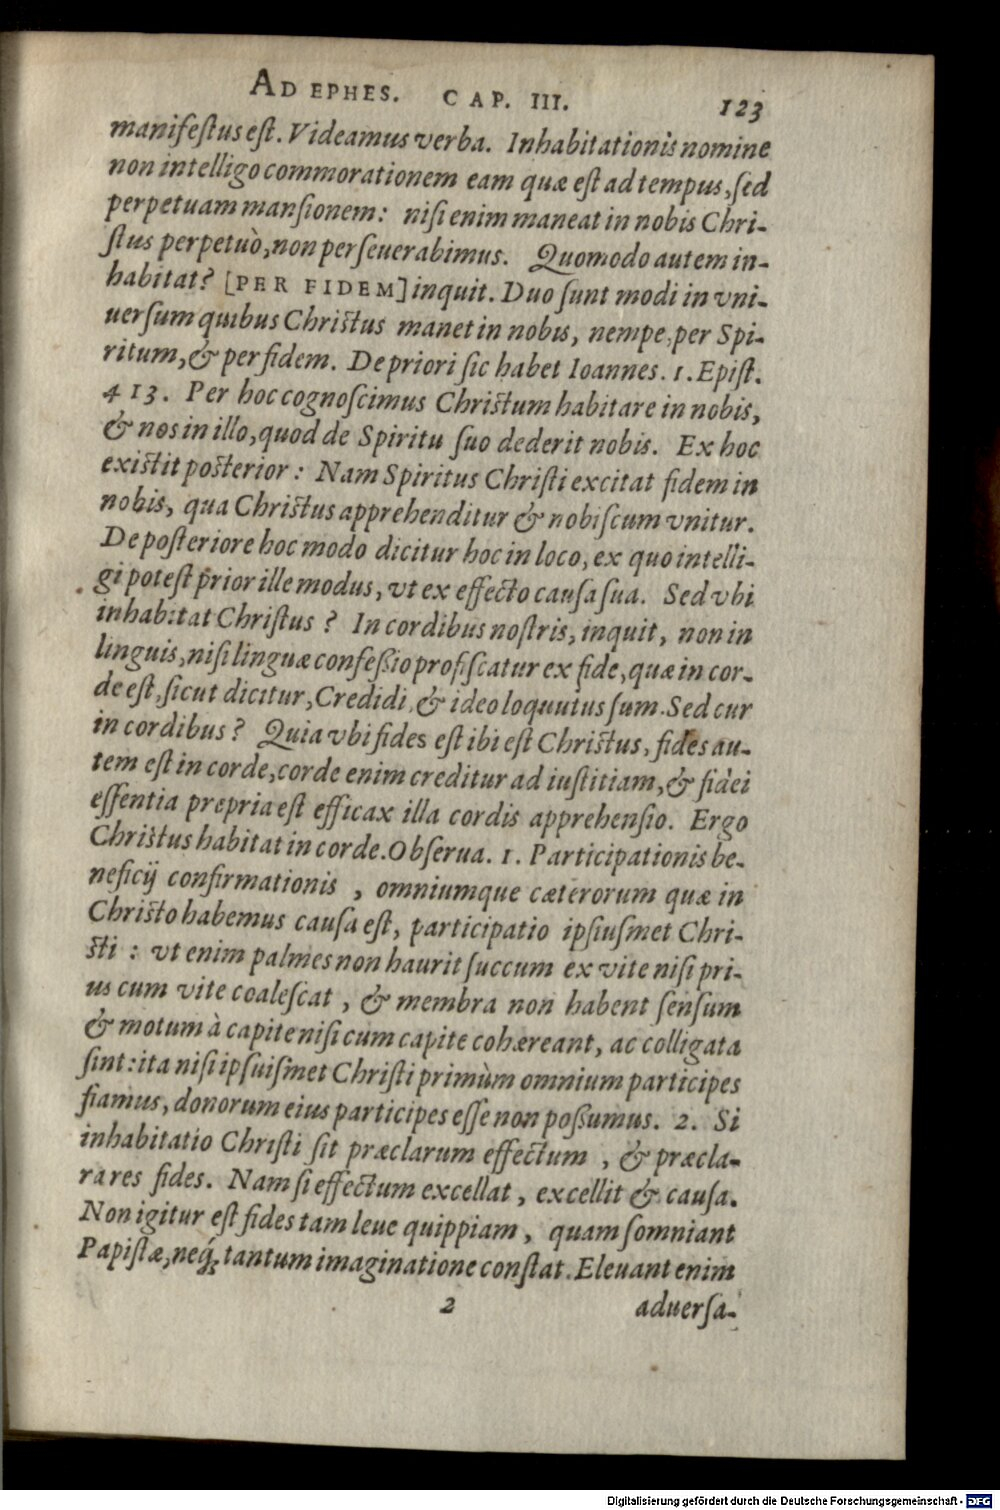 AD EPHES. CAP. III. 123
manifeſtus eſt. Videamus verba. Inhabitationis nomine
non intelligo commorationem eam quæ eſt ad tempus, ſed
perpetuam manſionem: niſi enim maneat in nobis Chri-
ſtus perpetuò, non perſeuerabimus. Quomodo autem in-
habitat? [PER FIDEM] inquit. Duo ſunt modi in vni-
uerſum quibus Chriſtus manet in nobis, nempe, per Spi-
ritum, & per fidem. De priori ſic habet Ioannes. 1. Epiſt.
4 13. Per hoc cognoſcimus Chriſtum habitare in nobis,
& nos in illo, quod de Spiritu ſuo dederit nobis. Ex hoc
exiſtit poſterior: Nam Spiritus Chriſti excitat fidem in
nobis, qua Chriſtus apprehenditur & nobiſcum vnitur.
De poſteriore hoc modo dicitur hoc in loco, ex quo intelli-
gi poteſt prior ille modus, vt ex effecto cauſa ſua. Sed vbi
inhabitat Chriſtus? In cordibus noſtris, inquit, non in
linguis, niſi linguæ confeßio profiſcatur ex fide, quæ in cor-
de eſt, ſicut dicitur, Credidi, & ideo loquutus ſum. Sed cur
in cordibus? Quia vbi fides eſt ibi eſt Chriſtus, fides au-
tem eſt in corde, corde enim creditur ad iuſtitiam, & fidei
eſſentia propria eſt efficax illa cordis apprehenſio. Ergo
Chriſtus habitat in corde. Obſerua. 1. Participationis be-
neficij confirmationis, omniumque cæterorum quæ in
Chriſto habemus cauſa eſt, participatio ipſiuſmet Chri-
ſti: vt enim palmes non haurit ſuccum ex vite niſi pri-
us cum vite coaleſcat, & membra non habent ſenſum
& motum à capite niſi cum capite cohæreant, ac colligata
ſint: ita niſi ipſuiſmet Chriſti primùm omnium participes
fiamus, donorum eius participes eſſe non poßumus. 2. Si
inhabitatio Chriſti ſit præclarum effectum, & præcla-
ra res fides. Nam ſi effectum excellat, excellit & cauſa.
Non igitur eſt fides tam leue quippiam, quam ſomniant
Papiſtæ, neq́; tantum imaginatione conſtat. Eleuant enim
2 aduerſa-
Digitalisierung gefördert durch die Deutsche Forschungsgemeinschaft - DFG